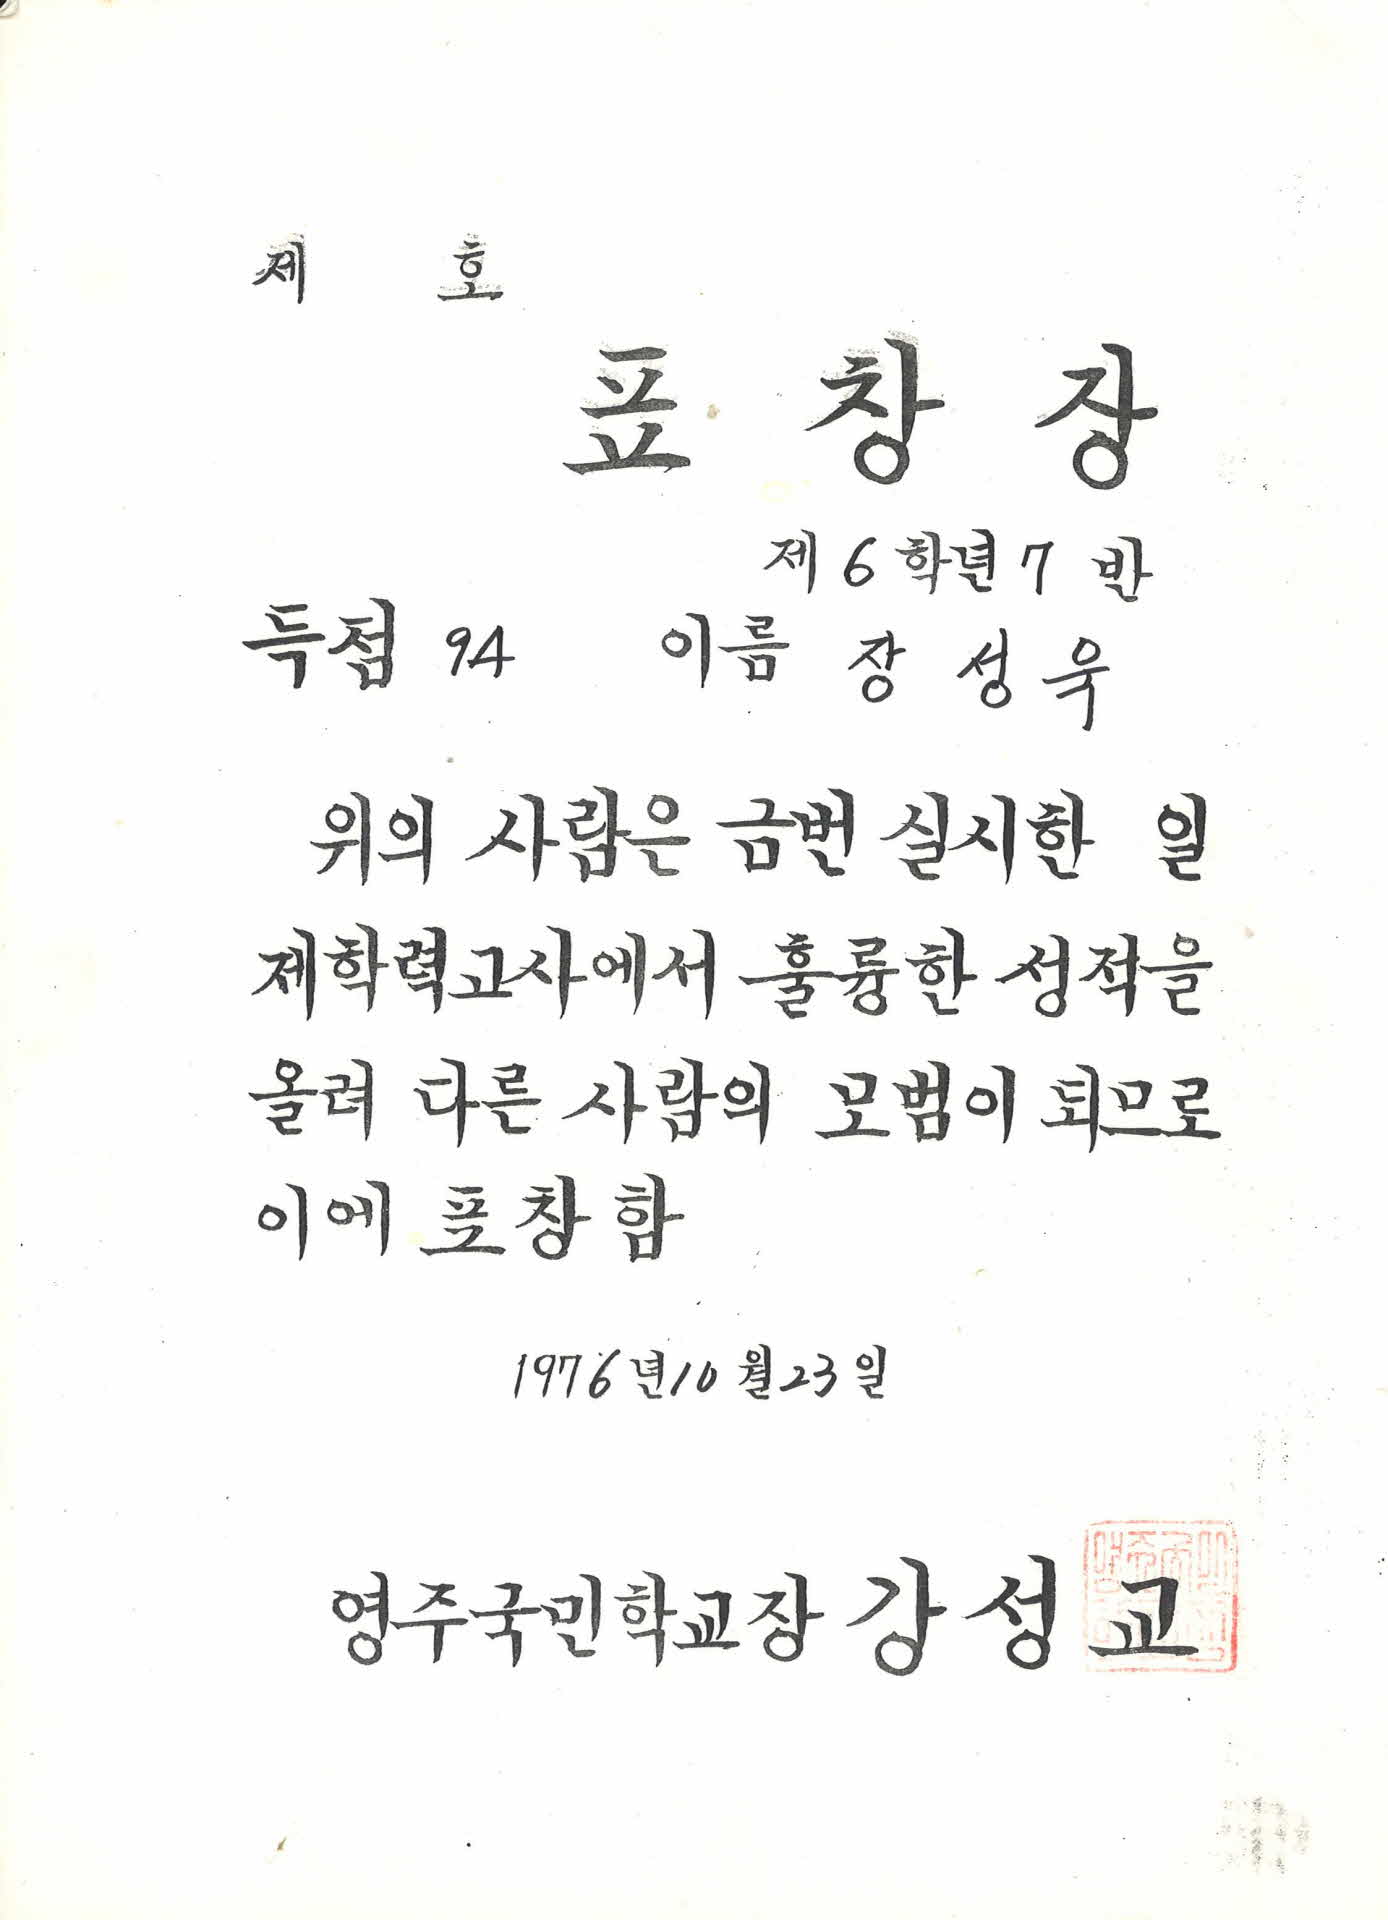 제 호
표창장
제 6 학년 7 반
득점 94 이름 장성욱
위의 사람은 금번 실시한 일
제학력고사에서 훌륭한 성적을
올려 다른 사람의 모범이 되므로
이에 표창함
1976년 10월 23일
영주국민학교장 강성교